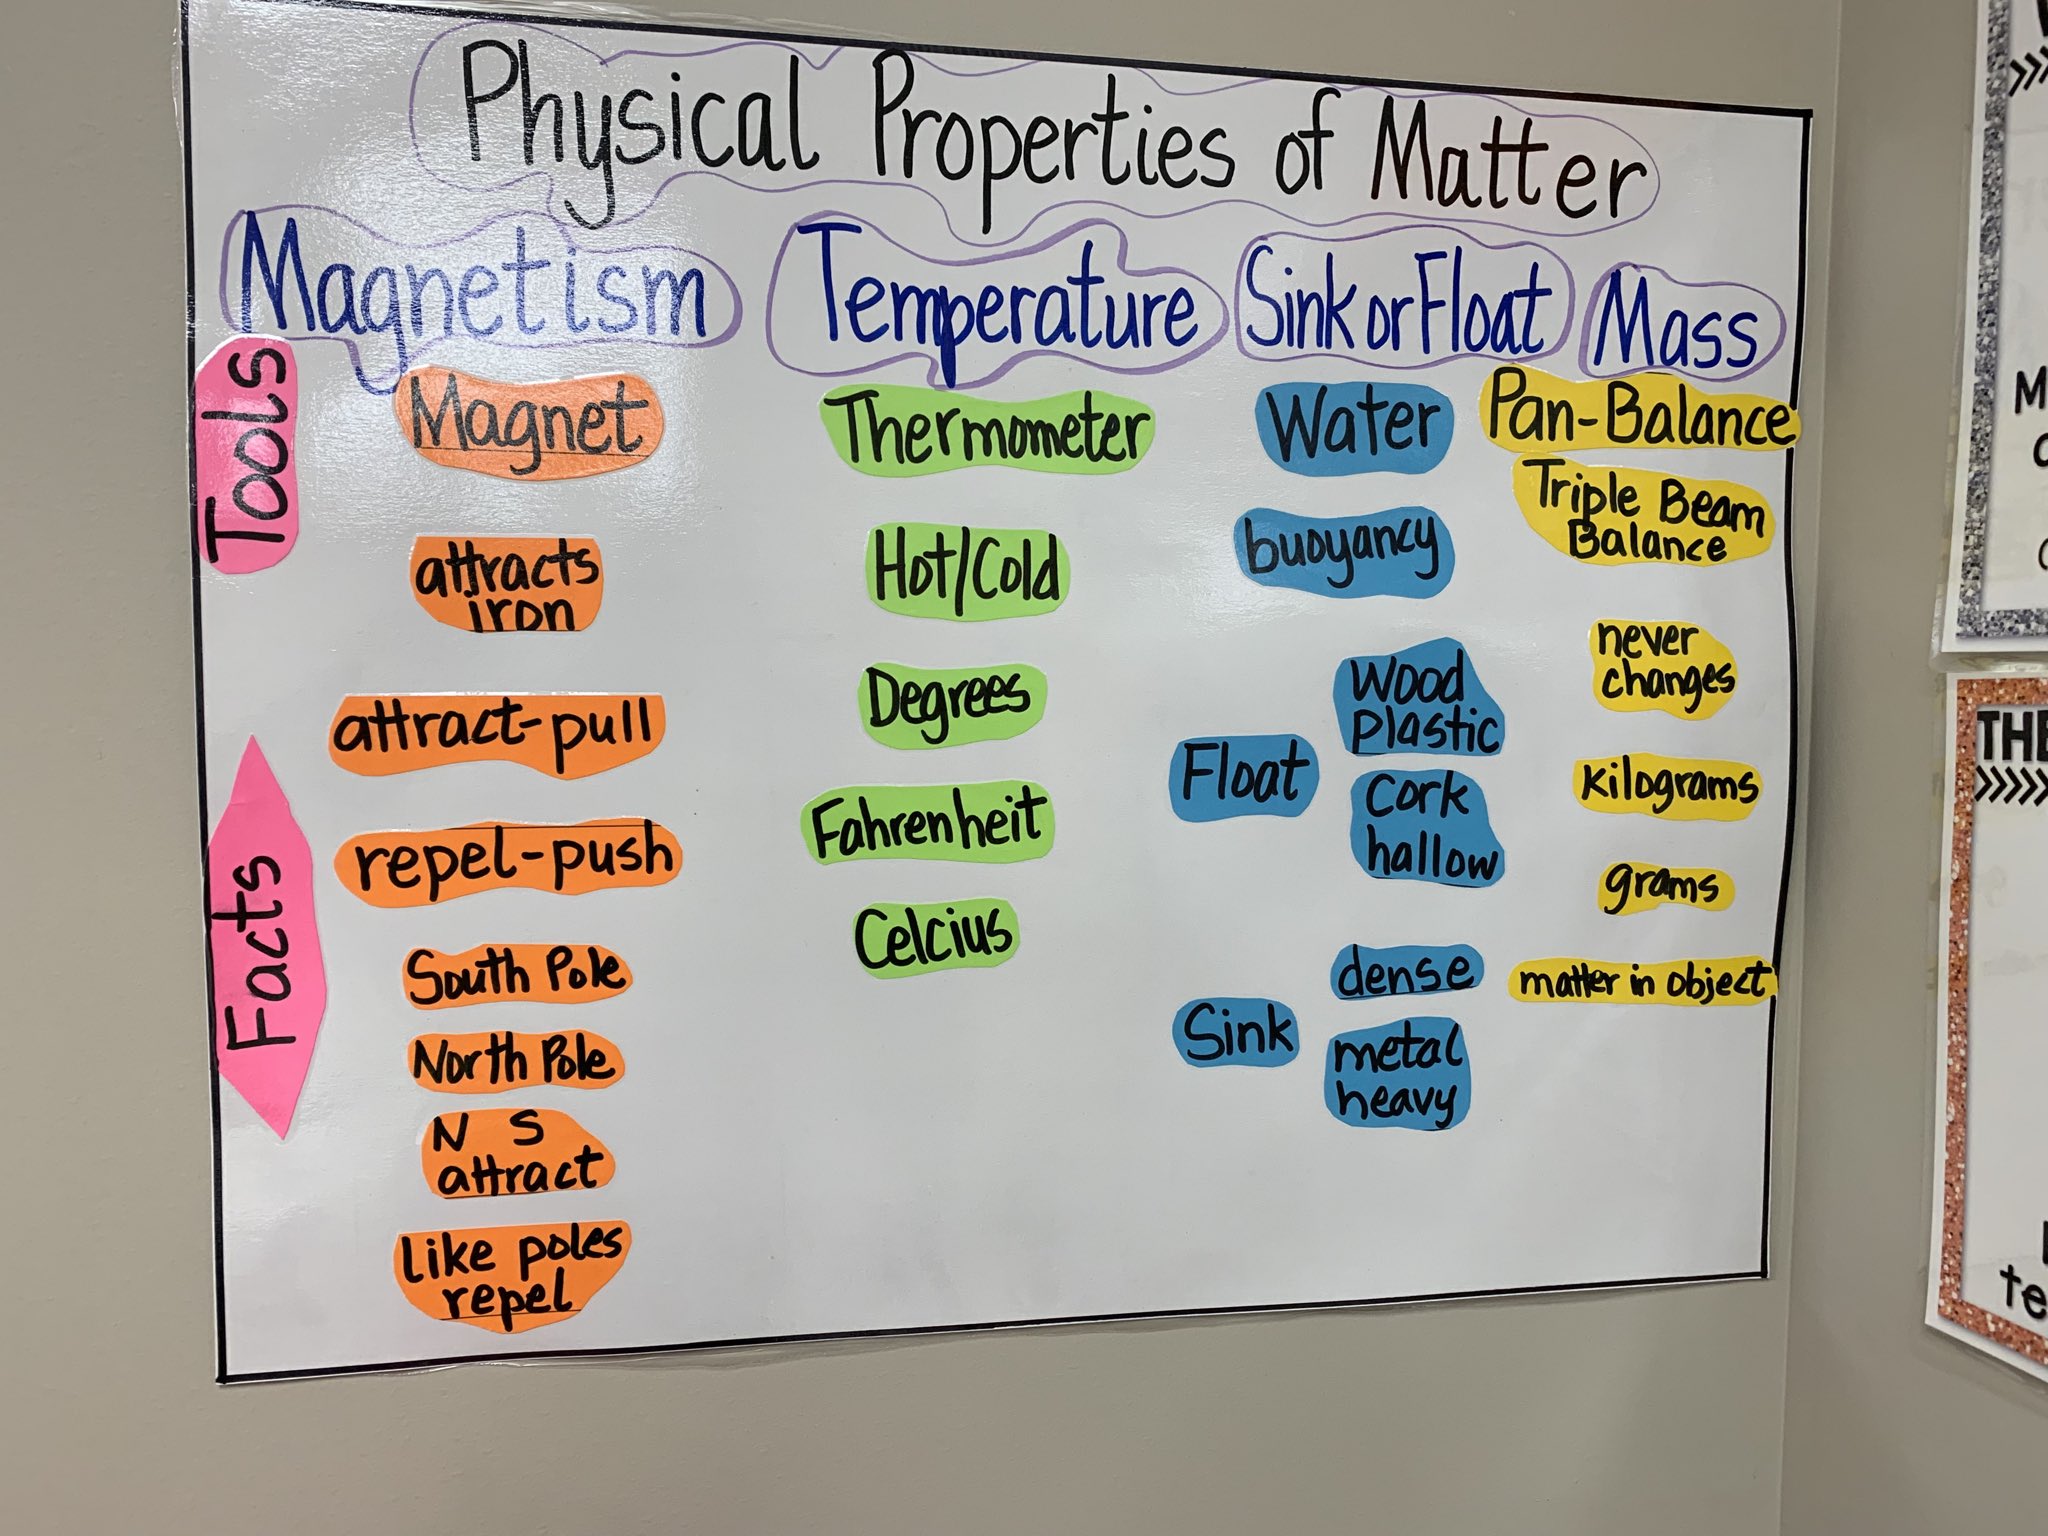 Physical Properties of Matter
Magnetism
Temperature
Sink or Float
Mass
Tools
Facts
Magnet
attracts
iron
attract-pull
repel-push
South Pole
North Pole
N S
attract
like poles
repel
Thermometer
Hot/Cold
Degrees
Fahrenheit
Celcius
Water
buoyancy
Float
Wood
plastic
Cork
hallow
Sink
dense
metal
heavy
Pan-Balance
Triple Beam
Balance
never
changes
kilograms
grams
matter in object
THE